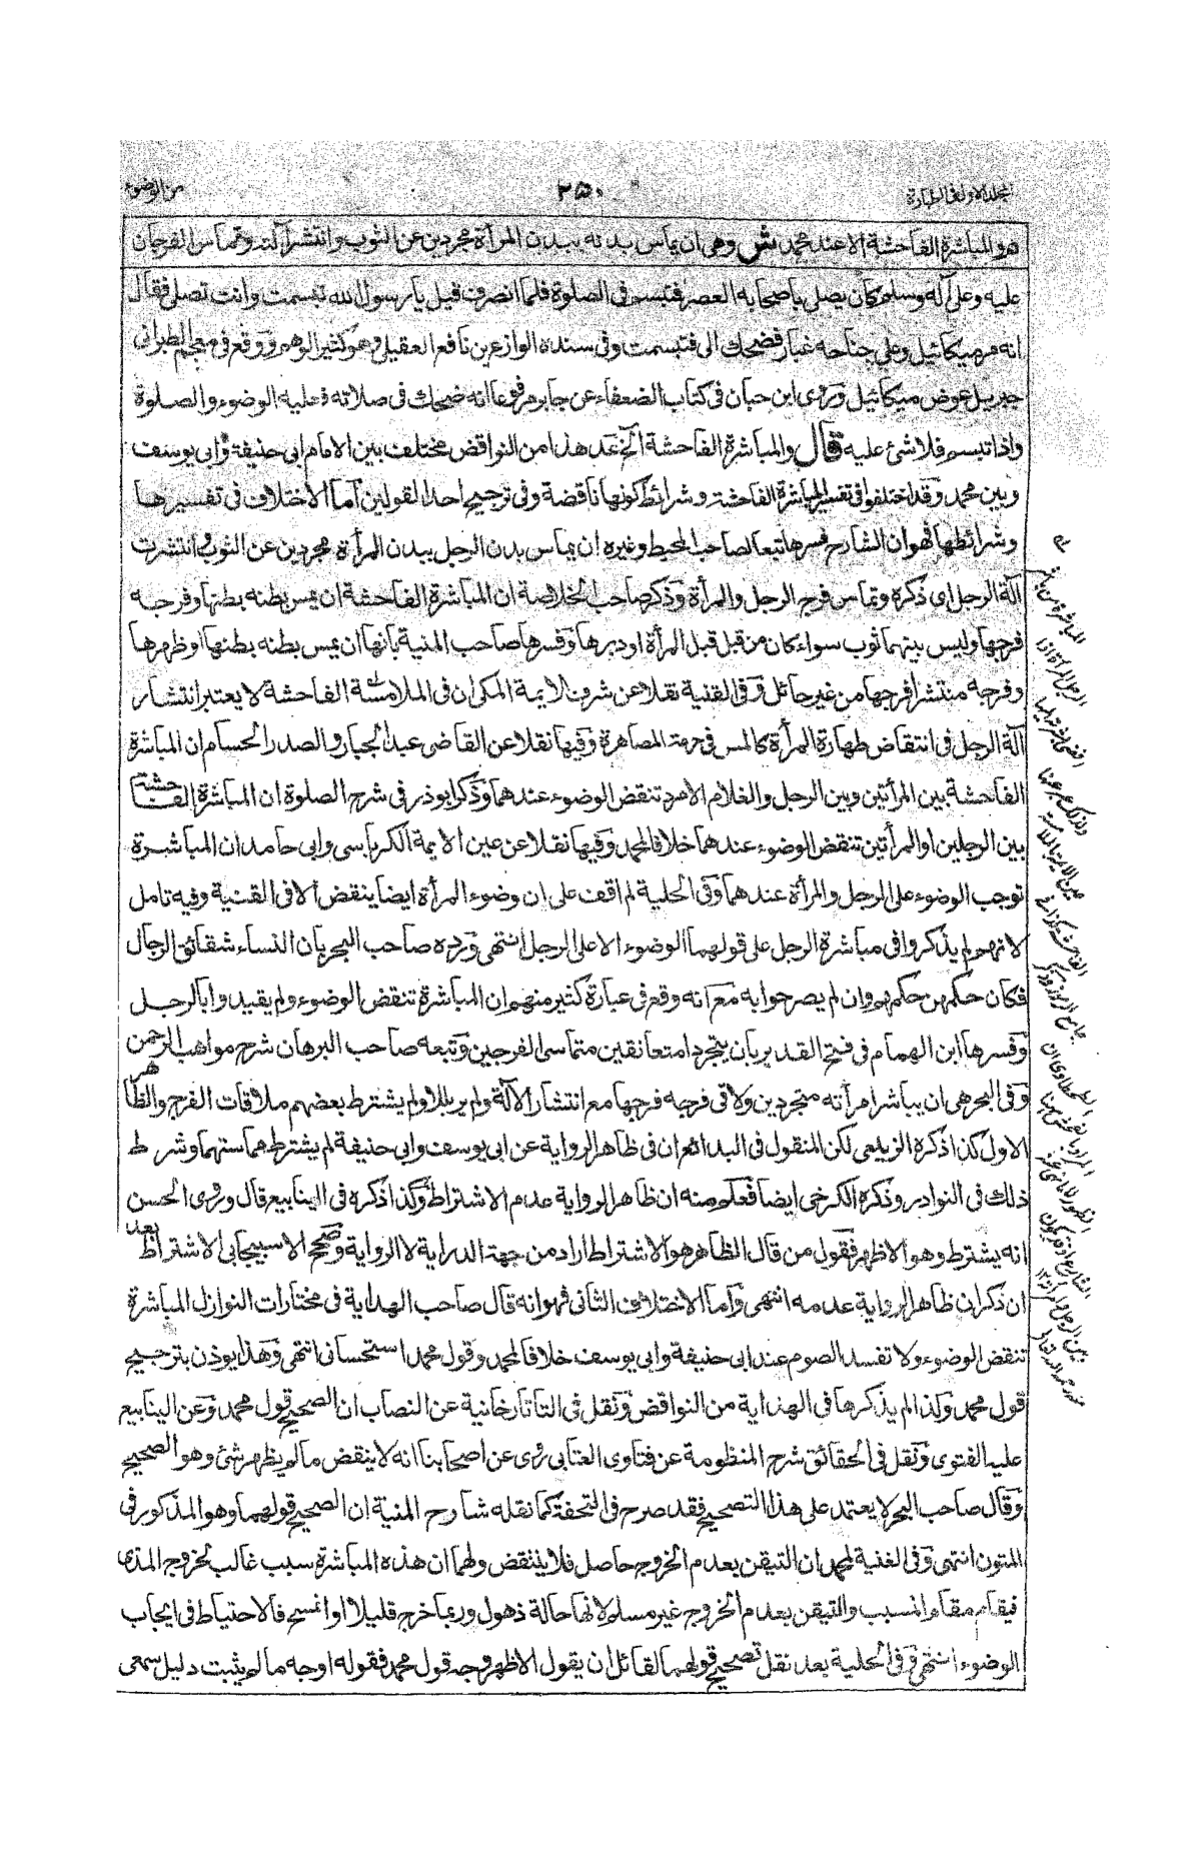 المجلد الاول فى الطهارة
٢٥٠
من الوضوء
هو المباشرة الفاحشة الا عند محمد ش وهى ان يماس بدنه ببدن المرأة مجردين عن الثوب وانتشر آلته وتماس الفرجان
عليه وعلى آله وسلم كان يصلى باصحابه العصر فتبسم فى الصلوة فلما انصرف قيل يا رسول الله تبسمت وانت تصلى فقال
انه مر ميكائيل وعلى جناحه غبار فضحك الى فتبسمت وفى سنده الوازع بن نافع العقيلى وهو كثير الوهم ووقع فى معجم الطبرانى
جبريل عوض ميكائيل وروى ابن حبان فى كتاب الضعفاء عن جابر مرفوعا انه ضحك فى صلاته فعليه الوضوء والصلوة
واذا تبسم فلا شئ عليه قال والمباشرة الفاحشة الخ عد هذا من النواقض مختلف بين الامام ابى حنيفة وابى يوسف
وبين محمد وقد اختلفوا فى تفسير المباشرة الفاحشة وشرائط كونها ناقضة وفى ترجيح احد القولين اما الاختلاف فى تفسيرها
وشرائطها فهو ان الشارح فسرها تبعا لصاحب المحيط وغيره ان يماس بدن الرجل ببدن المرأة مجردين عن الثوب وانتشرت
آلة الرجل اى ذكره وتماس فرج الرجل والمرأة وذكر صاحب الخلاصة ان المباشرة الفاحشة ان يمس بطنه بطنها وفرجه
فرجها وليس بينهما ثوب سواء كان من قبل قبل المرأة او دبرها وفسرها صاحب المنية بانها ان يمس بطنه بطنها او ظهرها
وفرجه منتشرا فرجها من غير حائل وفى القنية نقلا عن شرف الايمة المكى ان فى الملامسة الفاحشة لا يعتبر انتشار
آلة الرجل فى انتقاض طهارة المرأة كالمس فى حرمة المصاهرة وفيها نقلا عن القاضى عبد الجبار والصدر الحسام ان المباشرة
الفاحشة بين المرأتين وبين الرجل والغلام الامرد تنقض الوضوء عندهما وذكر ابو ذر فى شرح الصلوة ان المباشرة الفاحشة
بين الرجلين او المرأتين تنقض الوضوء عندهما خلافا لمحمد وفيها نقلا عن عين الايمة الكرباسى وابى حامد ان المباشرة
توجب الوضوء على الرجل والمرأة عندهما وفى الحلية لم اقف على ان وضوء المرأة ايضا ينقض الا فى القنية وفيه تامل
لانهم لم يذكروا فى مباشرة الرجل على قولهما الوضوء الا على الرجل انتهى ورده صاحب البحر بان النساء شقائق الرجال
فكان حكمهن حكمهم وان لم يصرحوا به مع انه وقع فى عبارة كثير منهم ان المباشرة تنقض الوضوء ولم يقيدوا بالرجل
وفسرها ابن الهمام فى فتح القدير بان يتجردا متعانقين متماسى الفرجين وتبعه صاحب البرهان شرح مواهب الرحمن
وفى البحر هى ان يباشر امرأته متجردين ولاقى فرجه فرجها مع انتشار الآلة ولم ير بللا ولم يشترط بعضهم ملاقات الفرج والظاهر
الاول كذا ذكره الزيلعى لكن المنقول فى البدائع ان فى ظاهر الرواية عن ابى يوسف وابى حنيفة لم يشترط مماستهما وشرط
ذلك فى النوادر وذكره الكرخى ايضا فعلم منه ان ظاهر الرواية عدم الاشتراط وكذا ذكره فى الينابيع قال وروى الحسن
انه يشترط وهو الاظهر فقول من قال الظاهر هو الاشتراط اراد من جهة الدراية لا الرواية وصحح الاسبيجابى الاشتراط بعد
ان ذكر ان ظاهر الرواية عدمه انتهى واما الاختلاف الثانى فهو انه قال صاحب الهداية فى مختارات النوازل المباشرة
تنقض الوضوء ولا تفسد الصوم عند ابى حنيفة وابى يوسف خلافا لمحمد وقول محمد استحسانى انتهى وهذا يوذن بترجيح
قول محمد ولذا لم يذكرها فى الهداية من النواقض ونقل فى التاتارخانية عن النصاب ان الصحيح قول محمد وعن الينابيع
عليه الفتوى ونقل فى الحقائق شرح المنظومة عن فتاوى العتابى روى عن اصحابنا انه لا ينقض ما لم يظهر شئ وهو الصحيح
وقال صاحب البحر لا يعتمد على هذا التصحيح فقد صرح فى التحفة كما نقله شارح المنية ان الصحيح قولهما وهو المذكور فى
المتون انتهى وفى الغنية لمحمد ان التيقن بعدم الخروج حاصل فلا ينتقض ولهما ان هذه المباشرة سبب غالب لخروج المذى
فيقام مقام المسبب والتيقن بعدم الخروج غير مسلم لانها حالة ذهول وربما خرج قليلا وانمسح فالاحتياط فى ايجاب
الوضوء انتهى وفى الحلية بعد نقل تصحيح قولهما لقائل ان يقول الاظهر وجه قول محمد فقوله اوجه ما لم يثبت دليل سمعى